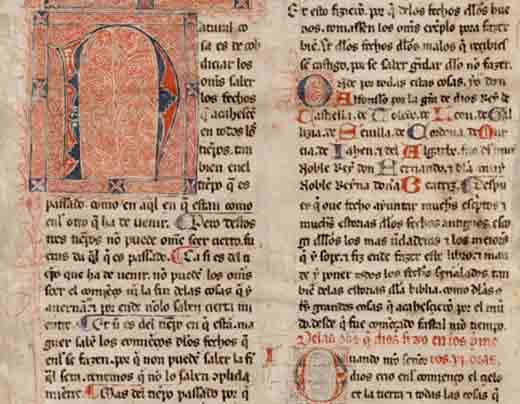 N atural co
sa es de cob
diciar los
om̃s saber
los fechos
q̃ acahesçẽ
en todos los
tiẽpos. tan
bien en el
tiẽpo q̃ es
passado. como en aq̃l en q̃ estan como
enl otro q̃ ha de uenir. Pero destos
tres tiẽpos no puede om̃e seer cierto. fu
eras da q̃l q̃ es passado. Ca si es del ti
ẽpo que ha de uenir. no puedẽ los om̃s
seer el comieço ni la fin delas cosas q̃ y
auernã. ⁊ por ende nolo saben cierta mi
entre. Et si es del tiẽpo en q̃ estã. ma
guer sabẽ los comieços dlos fechos q̃
enl se fazen. por que non puedẽ saber la fĩ
q̃l sera. tenemos q̃ no lo saben cõplida
miẽtre. Mas del tiẽpo passado por q̃
Et esto fizierõ. por q̃ delos fechos dlos bue
nos. tomassen los om̃s exẽplo pora fazer
biẽ. Et dlos fechos dlos malos q̃ recibies
sẽ castigo. por se saber guardar dlo no fazer.
Onde por todas estas cosas. yo don
Alfonsso por la gr̃a de dios Rey de
Castiella. de Toledo. de Leon. de Gal
lizia. de Seuilla. de Cordoua. de Mur
cia. de Iahen ⁊ del Algarbe. fijo del muy
Noble Rey don Fernando. ⁊ dla muy
Noble Reyna doña Beatriz. Despu
es q̃ oue fecho ayuntar muchos escriptos ⁊
muchas estorias dlos fechos antiguos. esco
gi dellos los mas uerdaderos ⁊ los meiores
q̃ y sope. ⁊ fiz ende fazer este libro. ⁊ man
de y poner todos los fechos señalados. tan
biẽ delas estorias dla biblia. como dlas otras
grandes cosas q̃ acahescierõ por el mũ
do. desde q̃ fue començado fastal nr̃o tiempo.
Delas obras q̃ dios fizo en los prime
I Quando nr̃o señor ros. VI. dias.
dios crio enl comienço el cielo
et la tierra ⁊ todas las cosas q̃